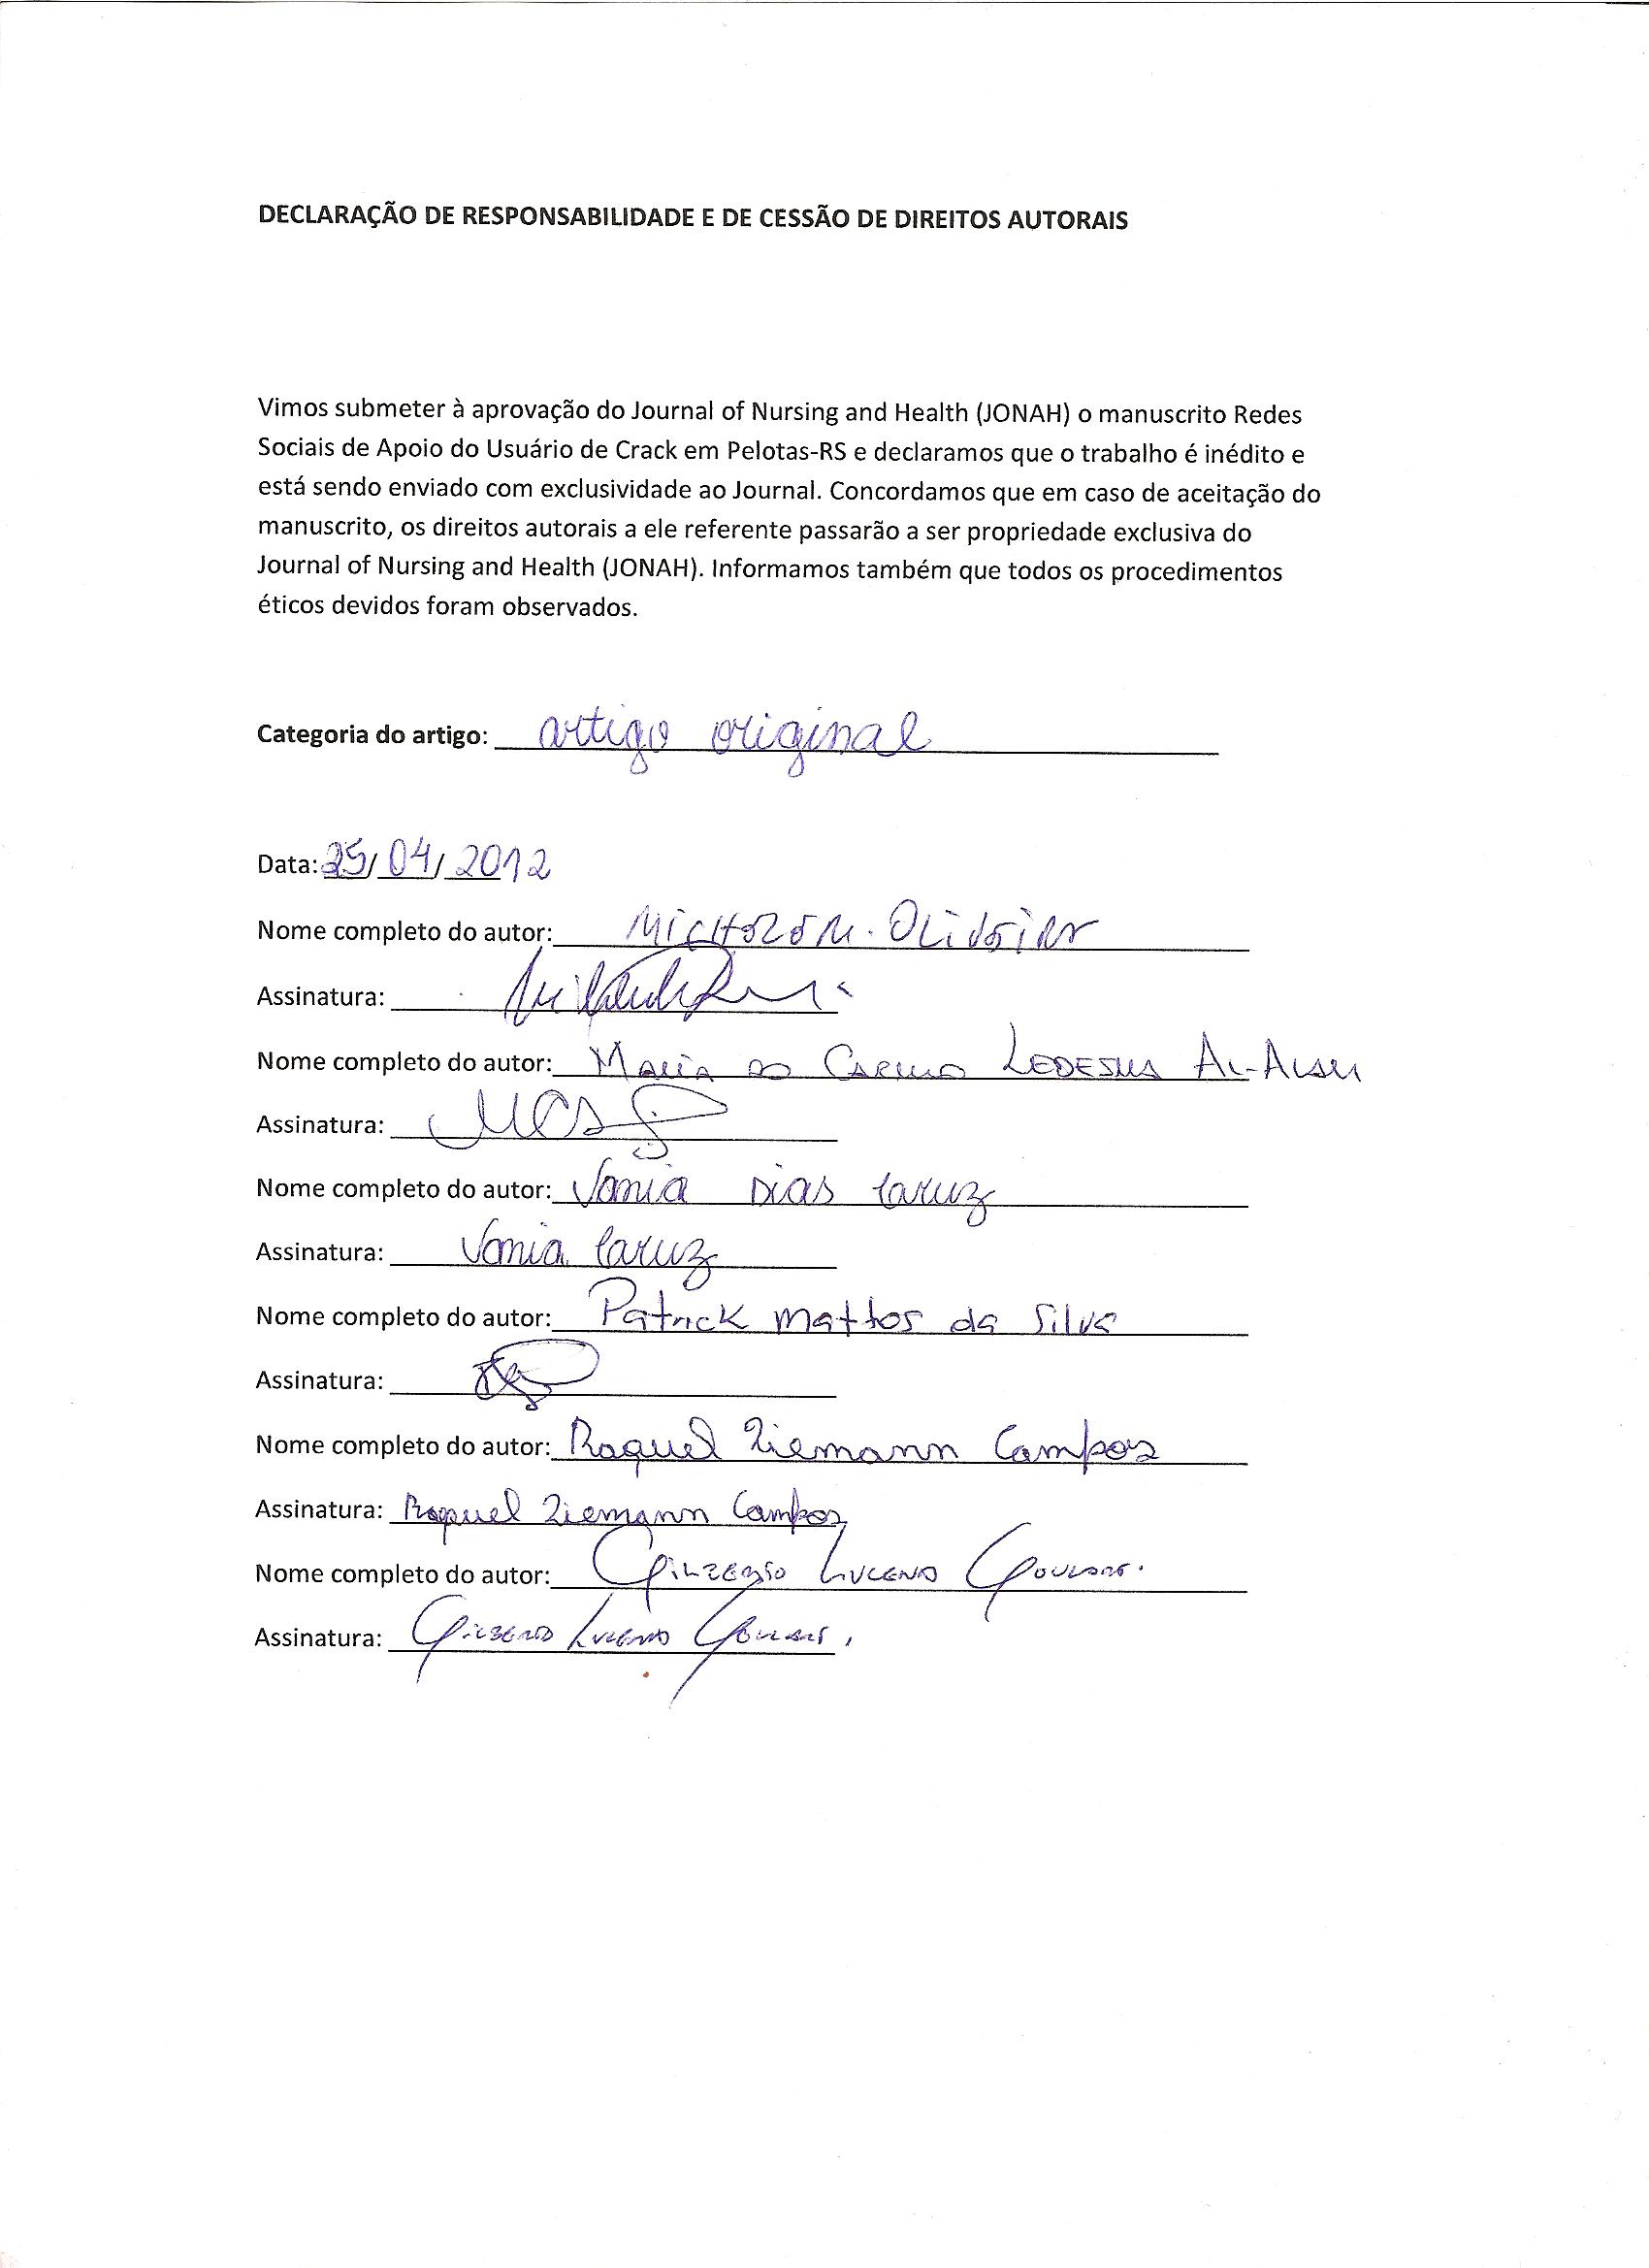 DECLARAÇÃO DE RESPONSABILIDADE E DE CESSÃO DE DIREITOS AUTORAIS
Vimos submeter à aprovação do Journal of Nursing and Health (JONAH) o manuscrito Redes
Sociais de Apoio do Usuário de Crack em Pelotas-RS e declaramos que o trabalho é inédito e
está sendo enviado com exclusividade ao Journal. Concordamos que em caso de aceitação do
manuscrito, os direitos autorais a ele referente passarão a ser propriedade exclusiva do
Journal of Nursing and Health (JONAH). Informamos também que todos os procedimentos
éticos devidos foram observados.
Categoria do artigo: artigo original
Data: 25/04/2012
Nome completo do autor: M. Oliveira
Assinatura:
Nome completo do autor: Maria do Carmo Ledesma Al-Alam
Assinatura:
Nome completo do autor: Vania Dias Cruz
Assinatura: Vania Cruz
Nome completo do autor: Patrick Mattos da Silva
Assinatura:
Nome completo do autor: Raquel Ziemann Campos
Assinatura: Raquel Ziemann Campos
Nome completo do autor: Lucena Goulart.
Assinatura: Lucena Goulart